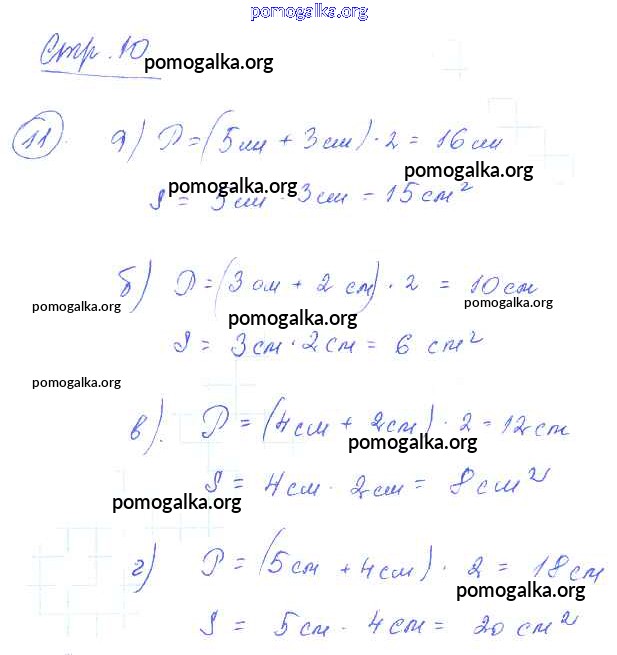 pomogalka.org
Стр. 10
pomogalka.org
11. а) P = (5см + 3см) · 2 = 16см
pomogalka.org
pomogalka.org
S = 5см · 3см = 15см²
б) P = (3см + 2см) · 2 = 10см
pomogalka.org
pomogalka.org
pomogalka.org
S = 3см · 2см = 6 см²
pomogalka.org
в). P = (4см + 2см) · 2 = 12см
pomogalka.org
S = 4см · 2см = 8см²
pomogalka.org
г) P = (5см + 4см) · 2 = 18см
pomogalka.org
S = 5см · 4см = 20см²